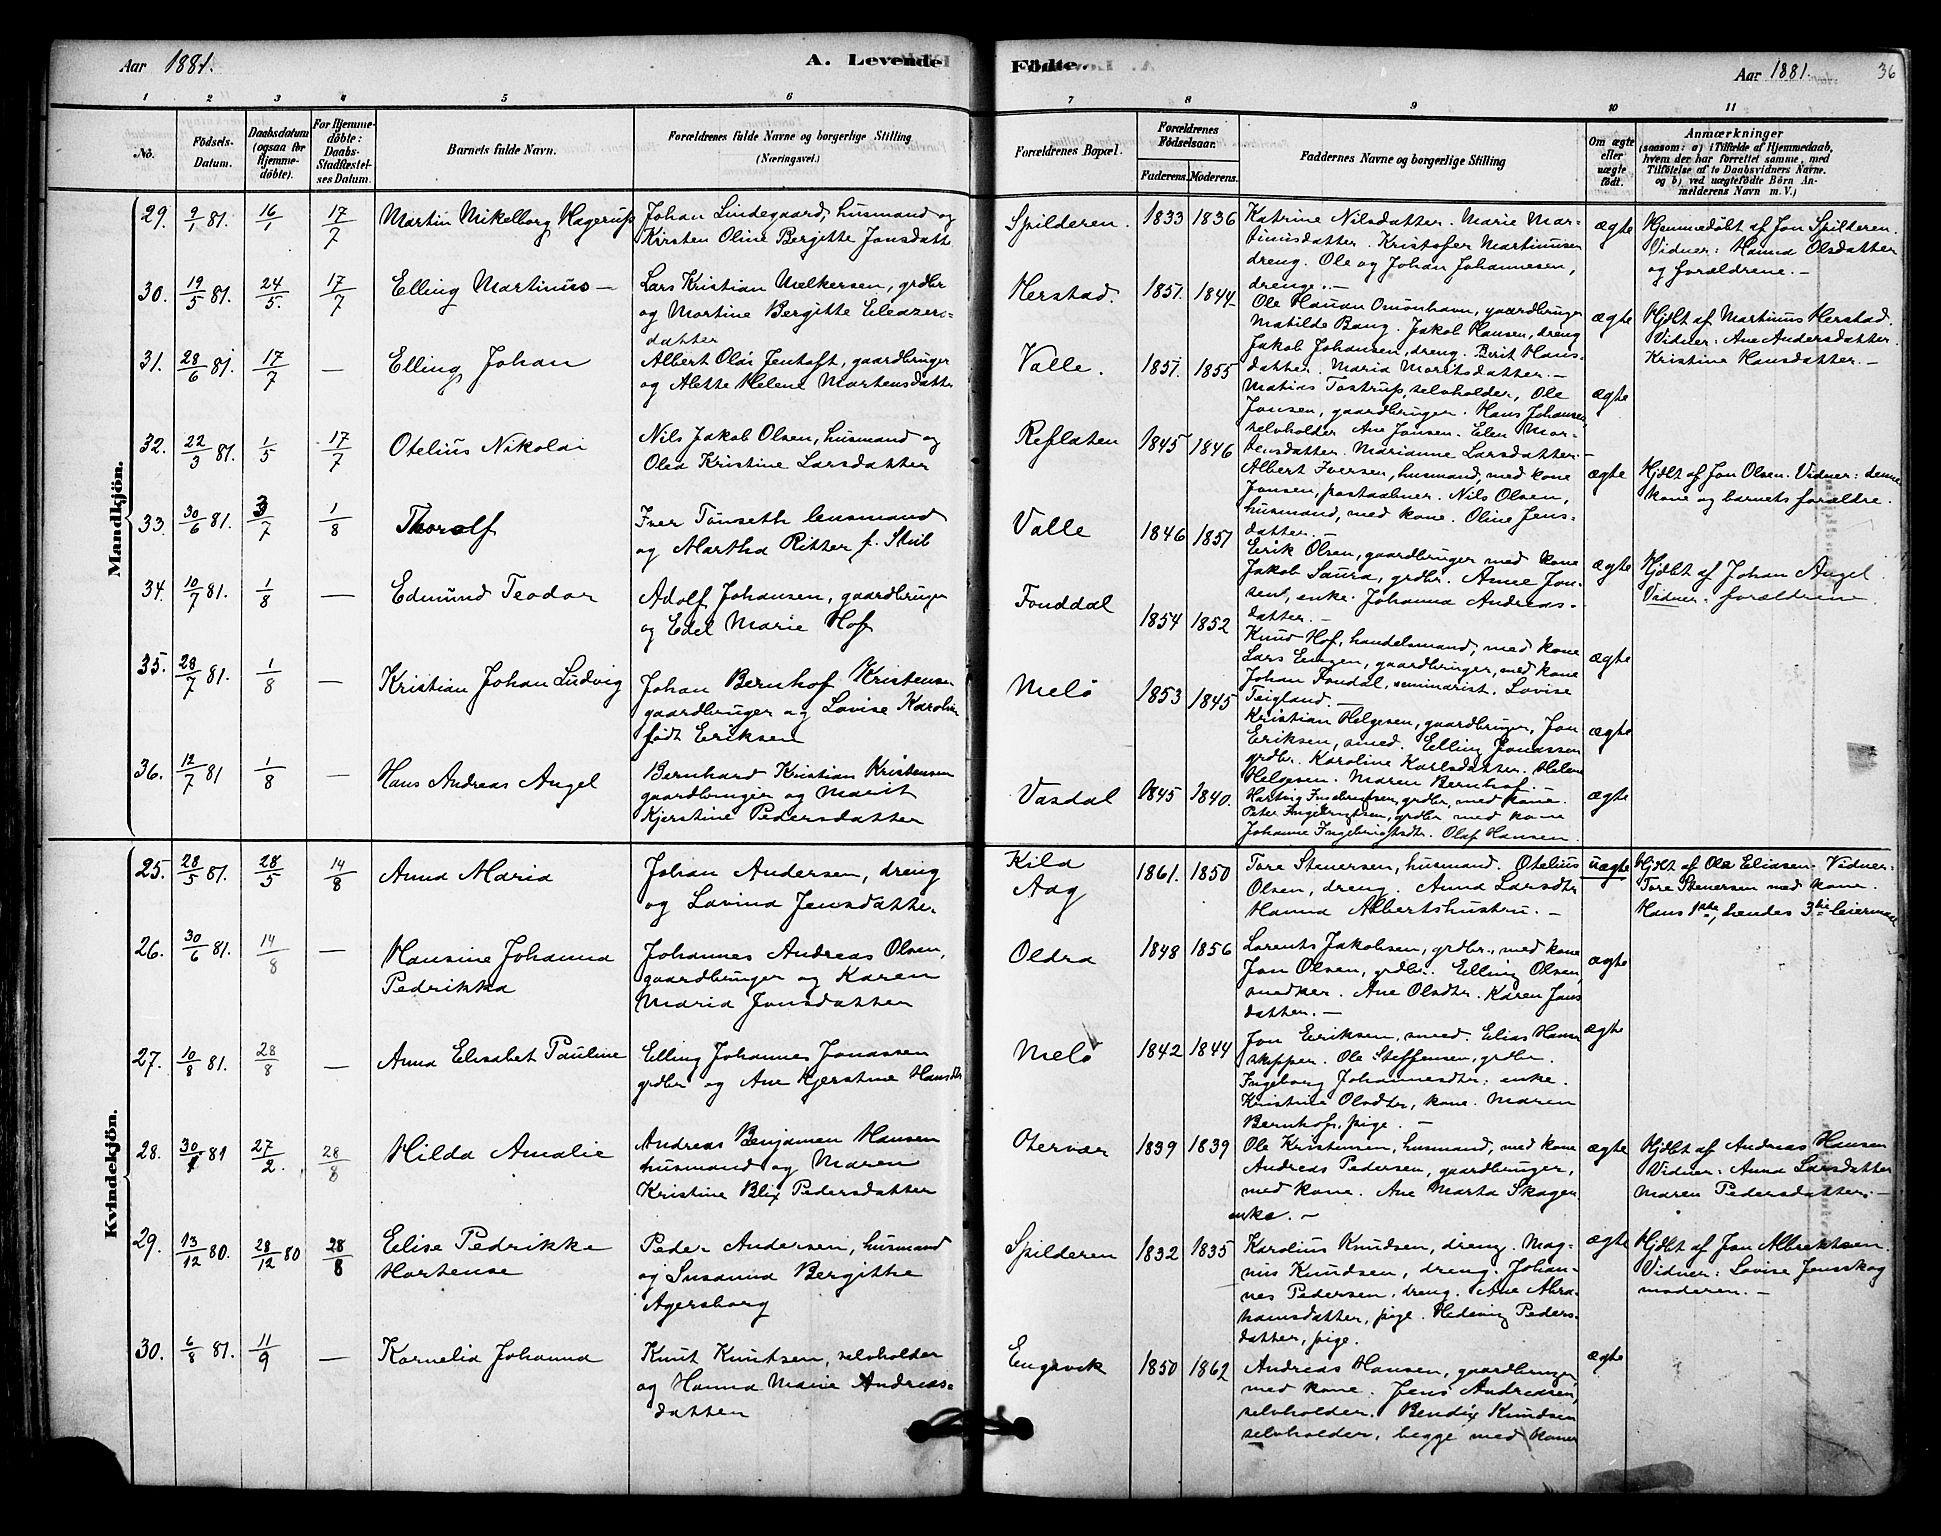 Aar 1881.
A. Levende
Födte.
Aar 1881.
36
1 2 3 4 5 6 7 8 9 10 11
No.
Födsels-
Datum.
Daabsdatum
(ogsaa for
Hjemme-
döbte).
For Hjemme-
döbte:
Daabs-
Stadfæstel-
ses Datum.
Barnets fulde Navn.
Forældrenes fulde Navne og borgerlige Stilling
(Næringsvei.)
Forældrenes Bopæl.
Forældrenes
Födselsaar.
Faderens. Moderens.
Faddernes Navne og borgerlige Stilling
Om ægte
eller
uægte
födt.
Anmærkninger
(saasom: a) i Tilfælde af Hjemmedaab,
hvem der har forrettet samme, med
Tilföielse af to Daabsvidners Navne.
og b) ved uægtefödte Börn An-
melderens Navn m. V.)
Mandkjön.
29. 9/1 81. 16/1 17/7 Martin Mikelborg Hagerup
Johan Lindegaard, husmand og
Kirsten Oline Bergitte Jonsdatt
Spilderen. 1833 1836
Katrine Nilsdatter. Marie Mar-
tinusdatter. Kristofer Martinusen
dreng. Ole og Johan Johannesen,
drenge. -
ægte
Hjemmedøbt af Jon Spilderen.
Vidner: Hanna Olsdatter
og forældrene. -
30. 19/5 81. 24/5. 17/7 Elling Martinus -
Lars Kristian Melkersen, grdbr
og Martine Bergitte Eleazers-
datter
Herstad. 1851. 1844
Ole Hauan Omönhavn, gaardbruger
Matilde Bang. Jakob Hansen, dreng
Jakob Johansen, dreng. Berit Hans-
datter. Maria Moritsdatter. -
ægte
Hjdbt af Martinus Herstad.
Vidner: Ane Andersdatter.
Kristine Hansdatter. -
31. 28/6 81. 17/7 - Elling Johan
Albert Olai Jentoft, gaardbruger
og Alette Helene Martensdatter
Valle. 1857. 1855
Matias Tostrup, selvholder, Ole
Jonsen, gaardbruger. Hans Johansen
selvholder Ane Jonsen. Elen Mor-
tensdatter. Marianne Larsdatter. -
ægte
32. 22/3 81. 1/5 17/7 Otelius Nikolai
Nils Jakob Olsen, husmand og
Olea Kristine Larsdatter
Reflaten 1845 1846
Albert Iversen, husmand, med kone
Jonsen, postaabner. Nils Olsen,
husmand, med kone. Oline Jens-
datter. -
ægte
Hjdbt af Jon Olsen. Vidner: denne
kone og barnets forældre.
33. 30/6 81. 3/7 1/8 Thorolf
Iver Tönseth lensmand
og Martha Ritter f. Stub
Valle 1846 1857
Erik Olsen, gaardbruger med kone
Jakob Saura, grdbr. Anne Jon-
sen, enke. Johanna Andreas-
datter. -
ægte
Hjdbt af Johan Angel.
Vidner: forældrene.
34. 10/7 81. 1/8 - Edmund Teodor
Adolf Johansen, gaardbruger
og Edel Marie Hof
Fonddal 1854 1852
Knud Hof, handelsmand, med kone
Lars Engen, gaardbruger, med kone
Johan Fondal, seminarist. Lovise
Teigland. -
ægte
35. 28/7 81. 1/8 - Kristian Johan Ludvig
Johan Bernhof Kristensen
gaardbruger og Lovise Karoline
født Eriksen
Melö 1853 1845
Kristian Helgesen, gaardbruger, Jon
Eriksen, smed. Elling Jonassen
grdbr. Karoline Karlsdatter. Helene
Helgesen. Maren Bernhof. -
ægte
36. 12/7 81 1/8 - Hans Andreas Angel
Bernhard Kristian Kristensen
gaardbruger og Marit
Kjerstine Pedersdatter
Vasdal 1845 1840.
Hartvig Ingebrigtsen, grdbr, med kone.
Peter Ingebrigtsen, grdbr med kone
Johanne Ingebrigtsdtr. Olaf Hansen.
ægte
Kvindekjön.
25. 28/5 81. 28/5 14/8 Anna Maria
Johan Andersen, dreng
og Lovina Jensdatter.
Kila
Aag
1861. 1850
Tore Stenersen, husmand. Otelius
Olsen, dreng. Anna Larsdtr
Hanna Albertshustru. -
uægte
Hjdbt af Ole Eliasen. Vidner:
Tore Stenersen med kone.
Hans 1ste, hendes 3die leiermaal
26. 30/6 81. 14/8 - Hansine Johanna
Pedrikka
Johannes Andreas Olsen,
gaardbruger og Karen
Maria Jonsdatter
Oldra 1848 1856
Lorents Jakobsen, grdbr., med kone
Jon Olsen, grdbr. Elling Olsen,
snedker. Ane Olsdtr. Karen Jons
datter. -
ægte
27. 10/8 81. 28/8 - Anna Elisabet Pauline
Elling Johannes Jonassen
grdbr og Ane Kjerstine Hansdtr
Melö 1842 1844
Jon Eriksen, smed. Elias Hansen
skipper. Ole Steffensen, grdbr.
Ingeborg Johannesdtr. enke.
Kristine Olsdtr, kone. Maren
Bernhof, pige. -
ægte
28. 30/1 81 27/2. 28/8 Hilda Amalie
Andreas Benjamen Hansen
husmand og Maren
Kristine Blix Pedersdatter
Otervær 1839 1839
Ole Kristensen, husmand, med kone
Andreas Pedersen, gaardbruger,
med kone. Ane Marta Skagen
enke. -
ægte
Hjdbt af Andreas Hansen
Vidner: Anna Larsdatter
Maren Pedersdatter. -
29. 13/12 80. 28/12 80 28/8 Elise Pedrikke
Hortense
Peder Andersen, husmand
og Susanna Bergitte
Agersborg
Spilderen 1832 1835
Karolius Knudsen, dreng. Mag-
nus Knudsen, dreng. Johan-
nes Pedersen, dreng. Ane Abra-
hamsdatter, pige. Hedvig Peders-
datter, pige.
ægte
Hjdbt af Jon Albrektsen.
Vidner: Lovise Jensskog
moderen. -
30. 6/8 81. 11/9 - Kornelia Johanna
Knut Knutsen, selvholder
og Hanna Marie Andreas-
datter
Engavik 1850 1862
Andreas Hansen, gaardbruger
med kone. Jens Andreasen,
selvholder. Bendix Knudsen
selvholder, begge med koner
ægte